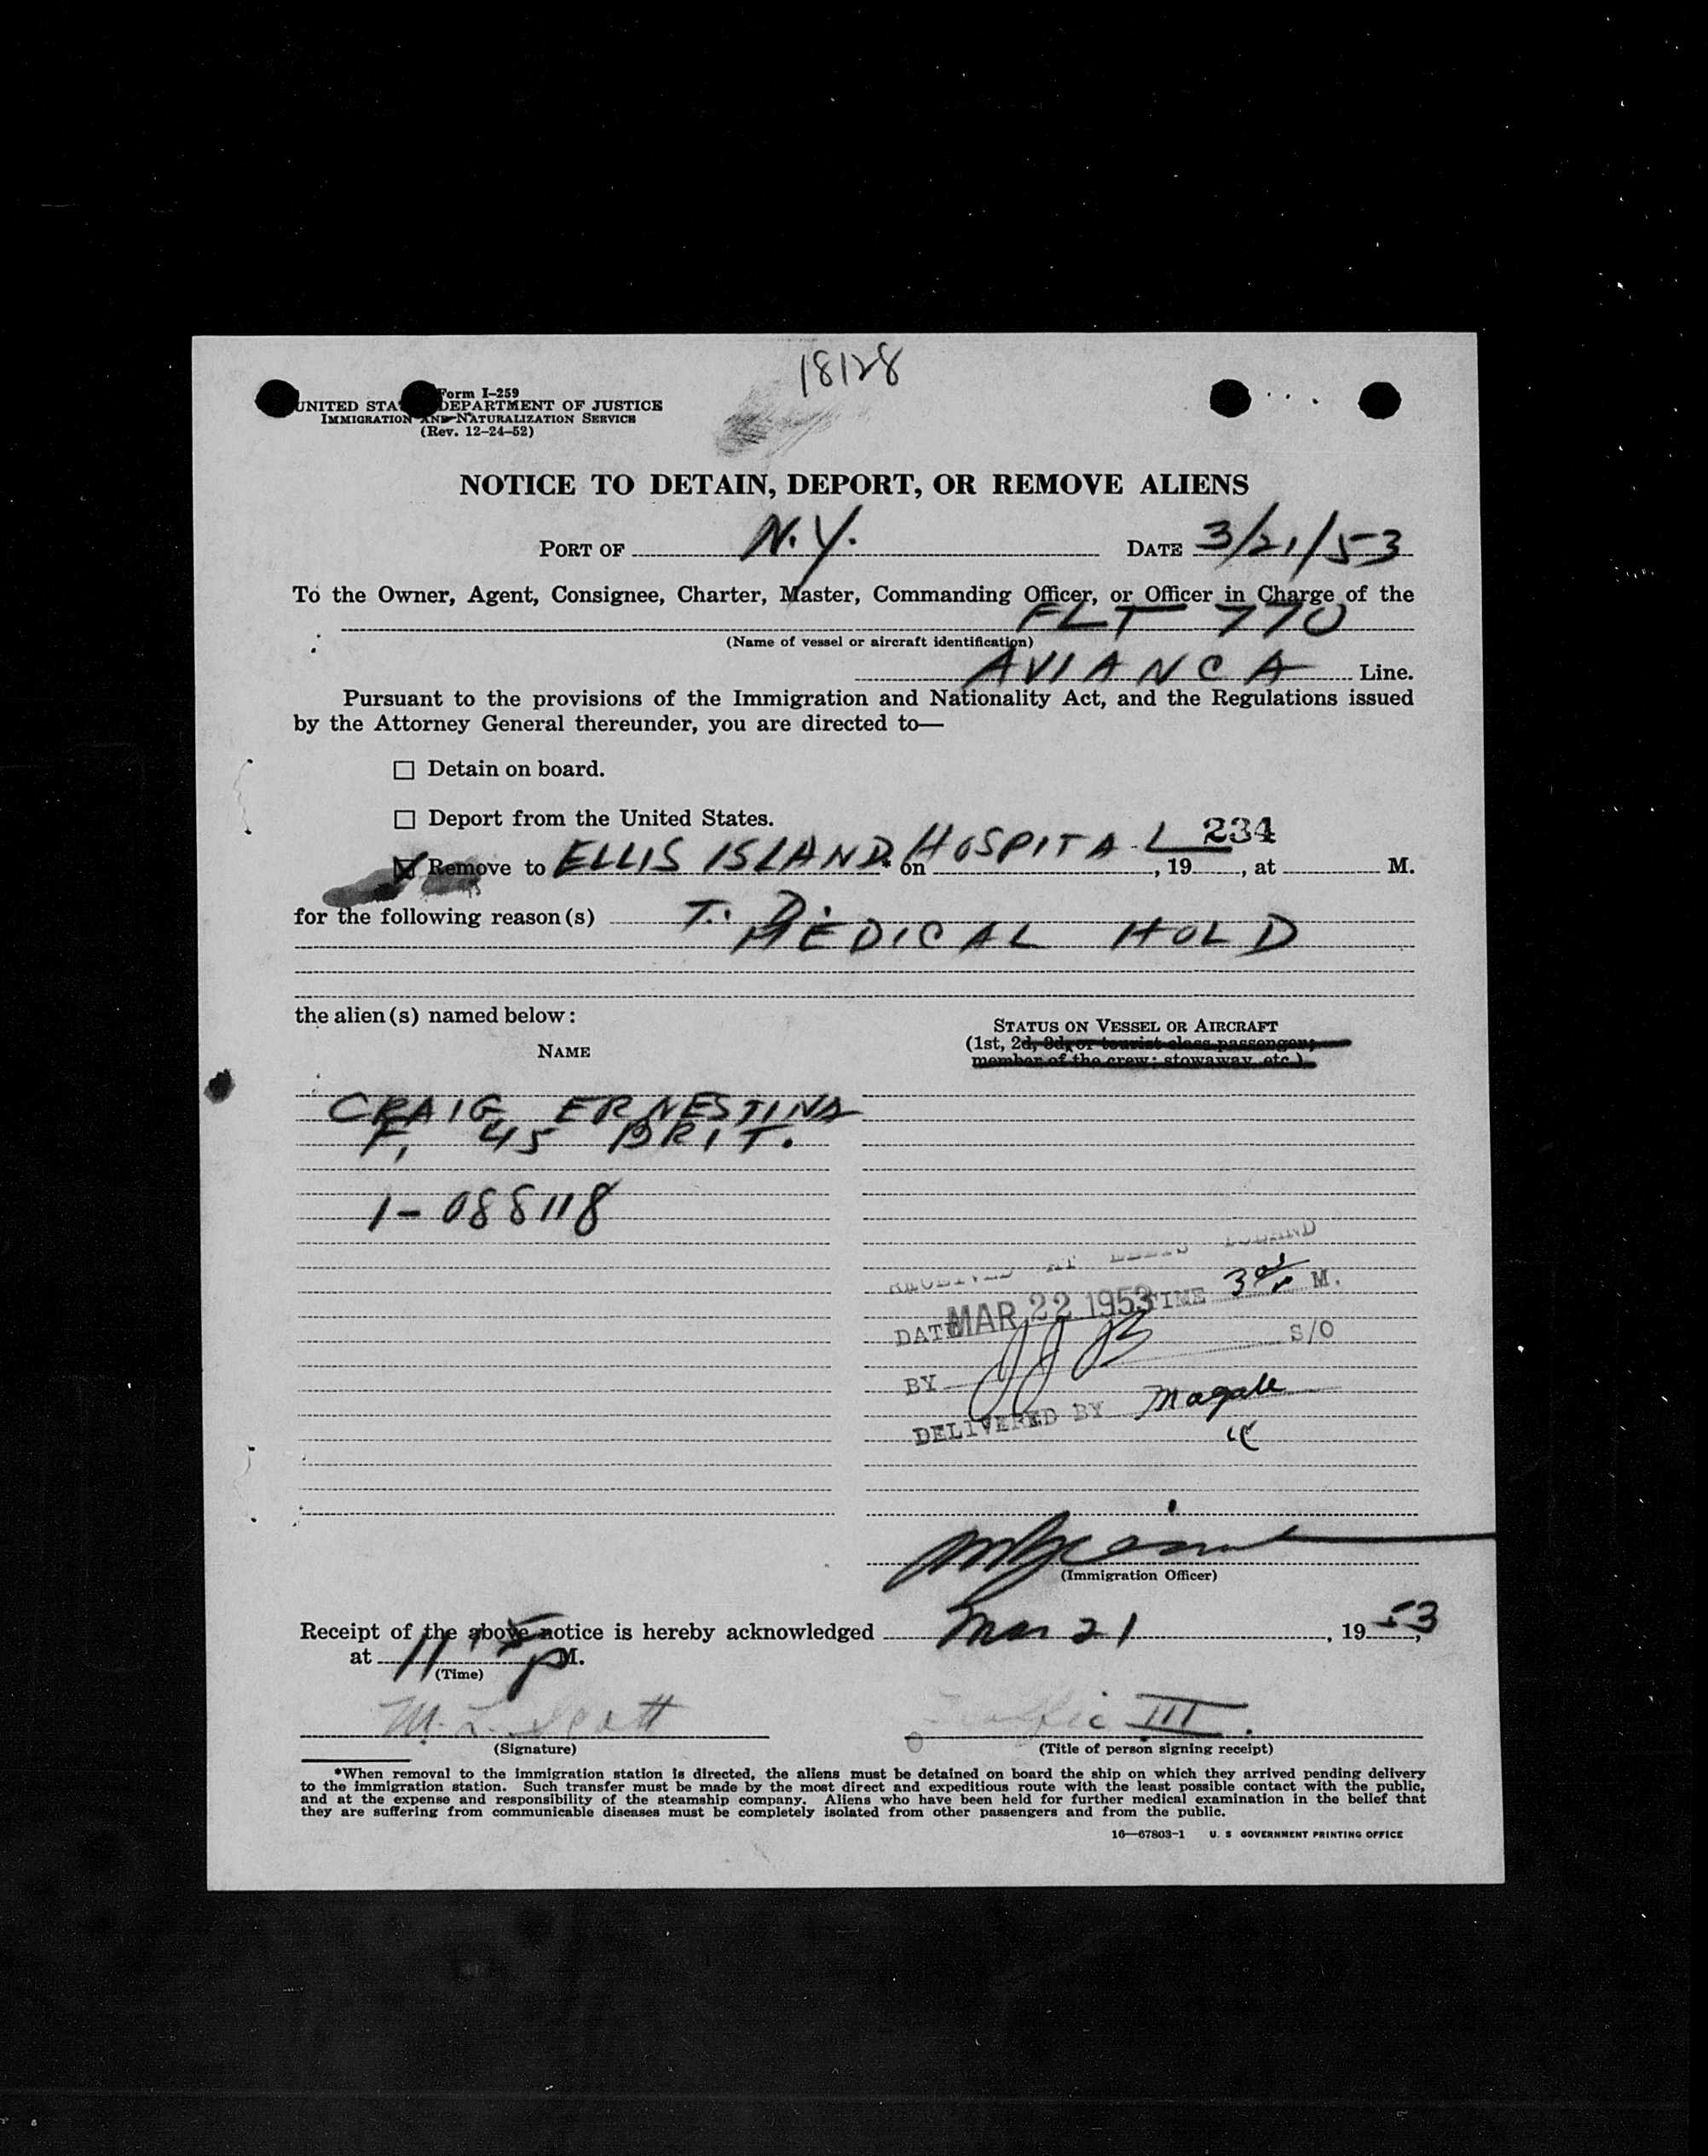 18128
Form I-259
UNITED STATES DEPARTMENT OF JUSTICE
IMMIGRATION AND NATURALIZATION SERVICE
(Rev. 12-24-52)
NOTICE TO DETAIN, DEPORT, OR REMOVE ALIENS
PORT OF N.Y. DATE 3/21/53
To the Owner, Agent, Consignee, Charter, Master, Commanding Officer, or Officer in Charge of the
FLT 770
(Name of vessel or aircraft identification)
AVIANCA Line.
Pursuant to the provisions of the Immigration and Nationality Act, and the Regulations issued
by the Attorney General thereunder, you are directed to—
Detain on board.
Deport from the United States.
234
Remove to ELLIS ISLAND HOSPITAL * on , 19 , at M.
for the following reason(s) T. D.
MEDICAL HOLD
the alien(s) named below:
NAME
STATUS ON VESSEL OR AIRCRAFT
(1st, 2d, 3d, or tourist class passenger;
member of the crew; stowaway, etc.)
CRAIG ERNESTINA
F, 45 BRIT.
1-088118
RECEIVED AT ELLIS ISLAND
DATE MAR 22 1953 TIME 3 M.
BY JJB S/O
DELIVERED BY Magale
(Immigration Officer)
Receipt of the above notice is hereby acknowledged Mar 21, 1953,
at 11 P M.
(Time)
M. L. Scott
III.
(Signature)
(Title of person signing receipt)
*When removal to the immigration station is directed, the aliens must be detained on board the ship on which they arrived pending delivery
to the immigration station. Such transfer must be made by the most direct and expeditious route with the least possible contact with the public,
and at the expense and responsibility of the steamship company. Aliens who have been held for further medical examination in the belief that
they are suffering from communicable diseases must be completely isolated from other passengers and from the public.
16—67803-1 U. S GOVERNMENT PRINTING OFFICE